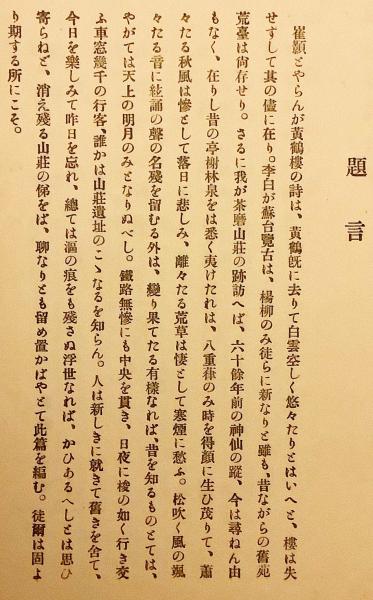 題言
崔顥とやらんが黃鶴樓の詩は、黃鶴旣に去りて白雲空しく悠々たりとはいへど、樓は失
せずして其の儘に在り。李白が蘇台覽古は、楊柳のみ徒らに新なりと雖も、昔ながらの舊苑
荒臺は尙存せり。さるに我が茶磨山莊の跡訪へば、六十餘年前の神仙の蹤、今は尋ねん由
もなく、在りし昔の亭榭林泉をば悉く夷けたれは、八重葎のみ時を得顏に生ひ茂りて、蕭
々たる秋風は慘として落日に悲しみ、離々たる荒草は悽として寒煙に愁ふ。松吹く風の颯
々たる音に絃誦の聲の名殘を留むる外は、變り果てたる有樣なれば、昔を知るものとては、
やがては天上の明月のみとなりぬべし。鐵路無慘にも中央を貫き、日夜に梭の如く行き交
ふ車窓幾千の行客、誰かは山莊遺址のこゝなるを知らん。人は新しきに就きて舊きを舍て、
今日を樂しみて昨日を忘れ、總ては漚の痕をも殘さぬ浮世なれば、かひあるへしとは思ひ
寄らねど、消え殘る山莊の俤をば、聊なりとも留め置かばやとて此篇を編む。徒爾は固よ
り期する所にこそ。